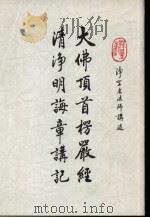 淨空老法師講述
大佛頂首楞嚴經
清淨明誨章講記